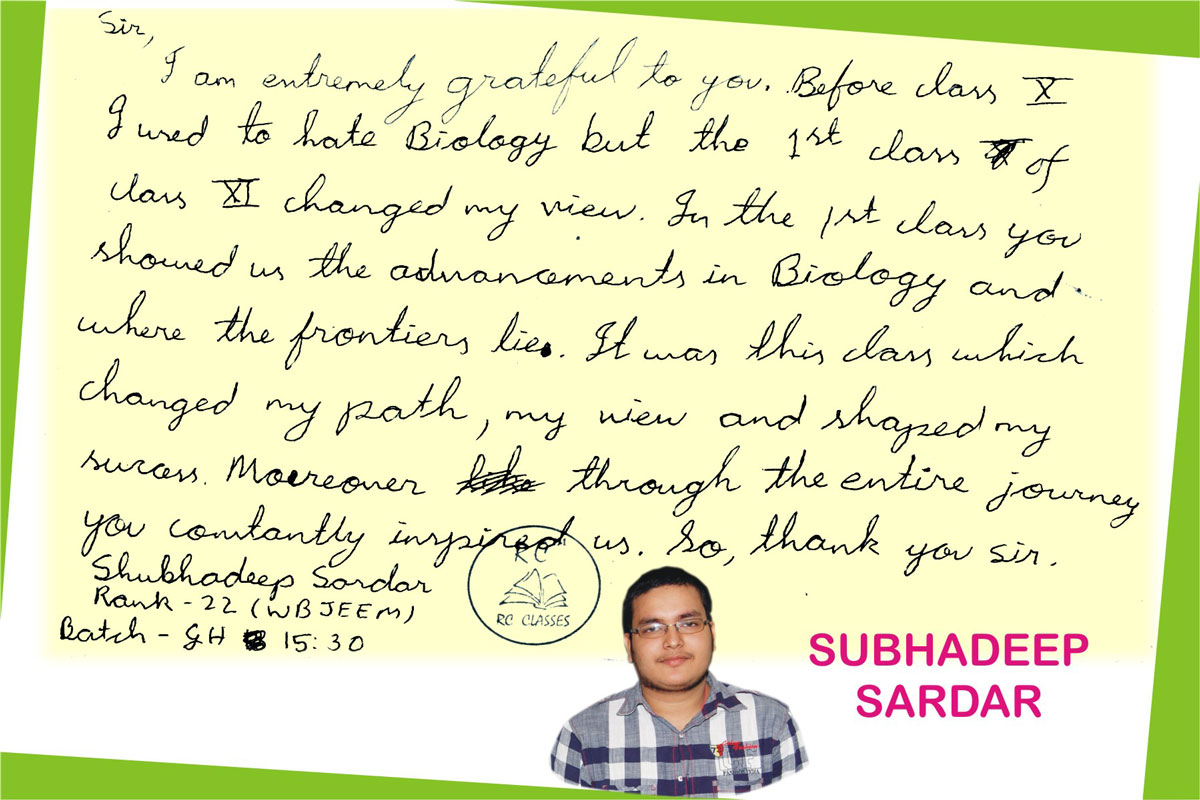 Sir,
I am extremely grateful to you. Before class X
I used to hate Biology but the 1st class of
class XI changed my view. In the 1st class you
showed us the advancements in Biology and
where the frontiers lie. It was this class which
changed my path, my view and shaped my
sucess. Moereover through the entire journey
you constantly inspired us. So, thank you sir.
Shubhadeep Sardar
Rank - 22 (WBJEEM)
Batch - GH 15:30
RC
RC CLASSES
SUBHADEEP
SARDAR